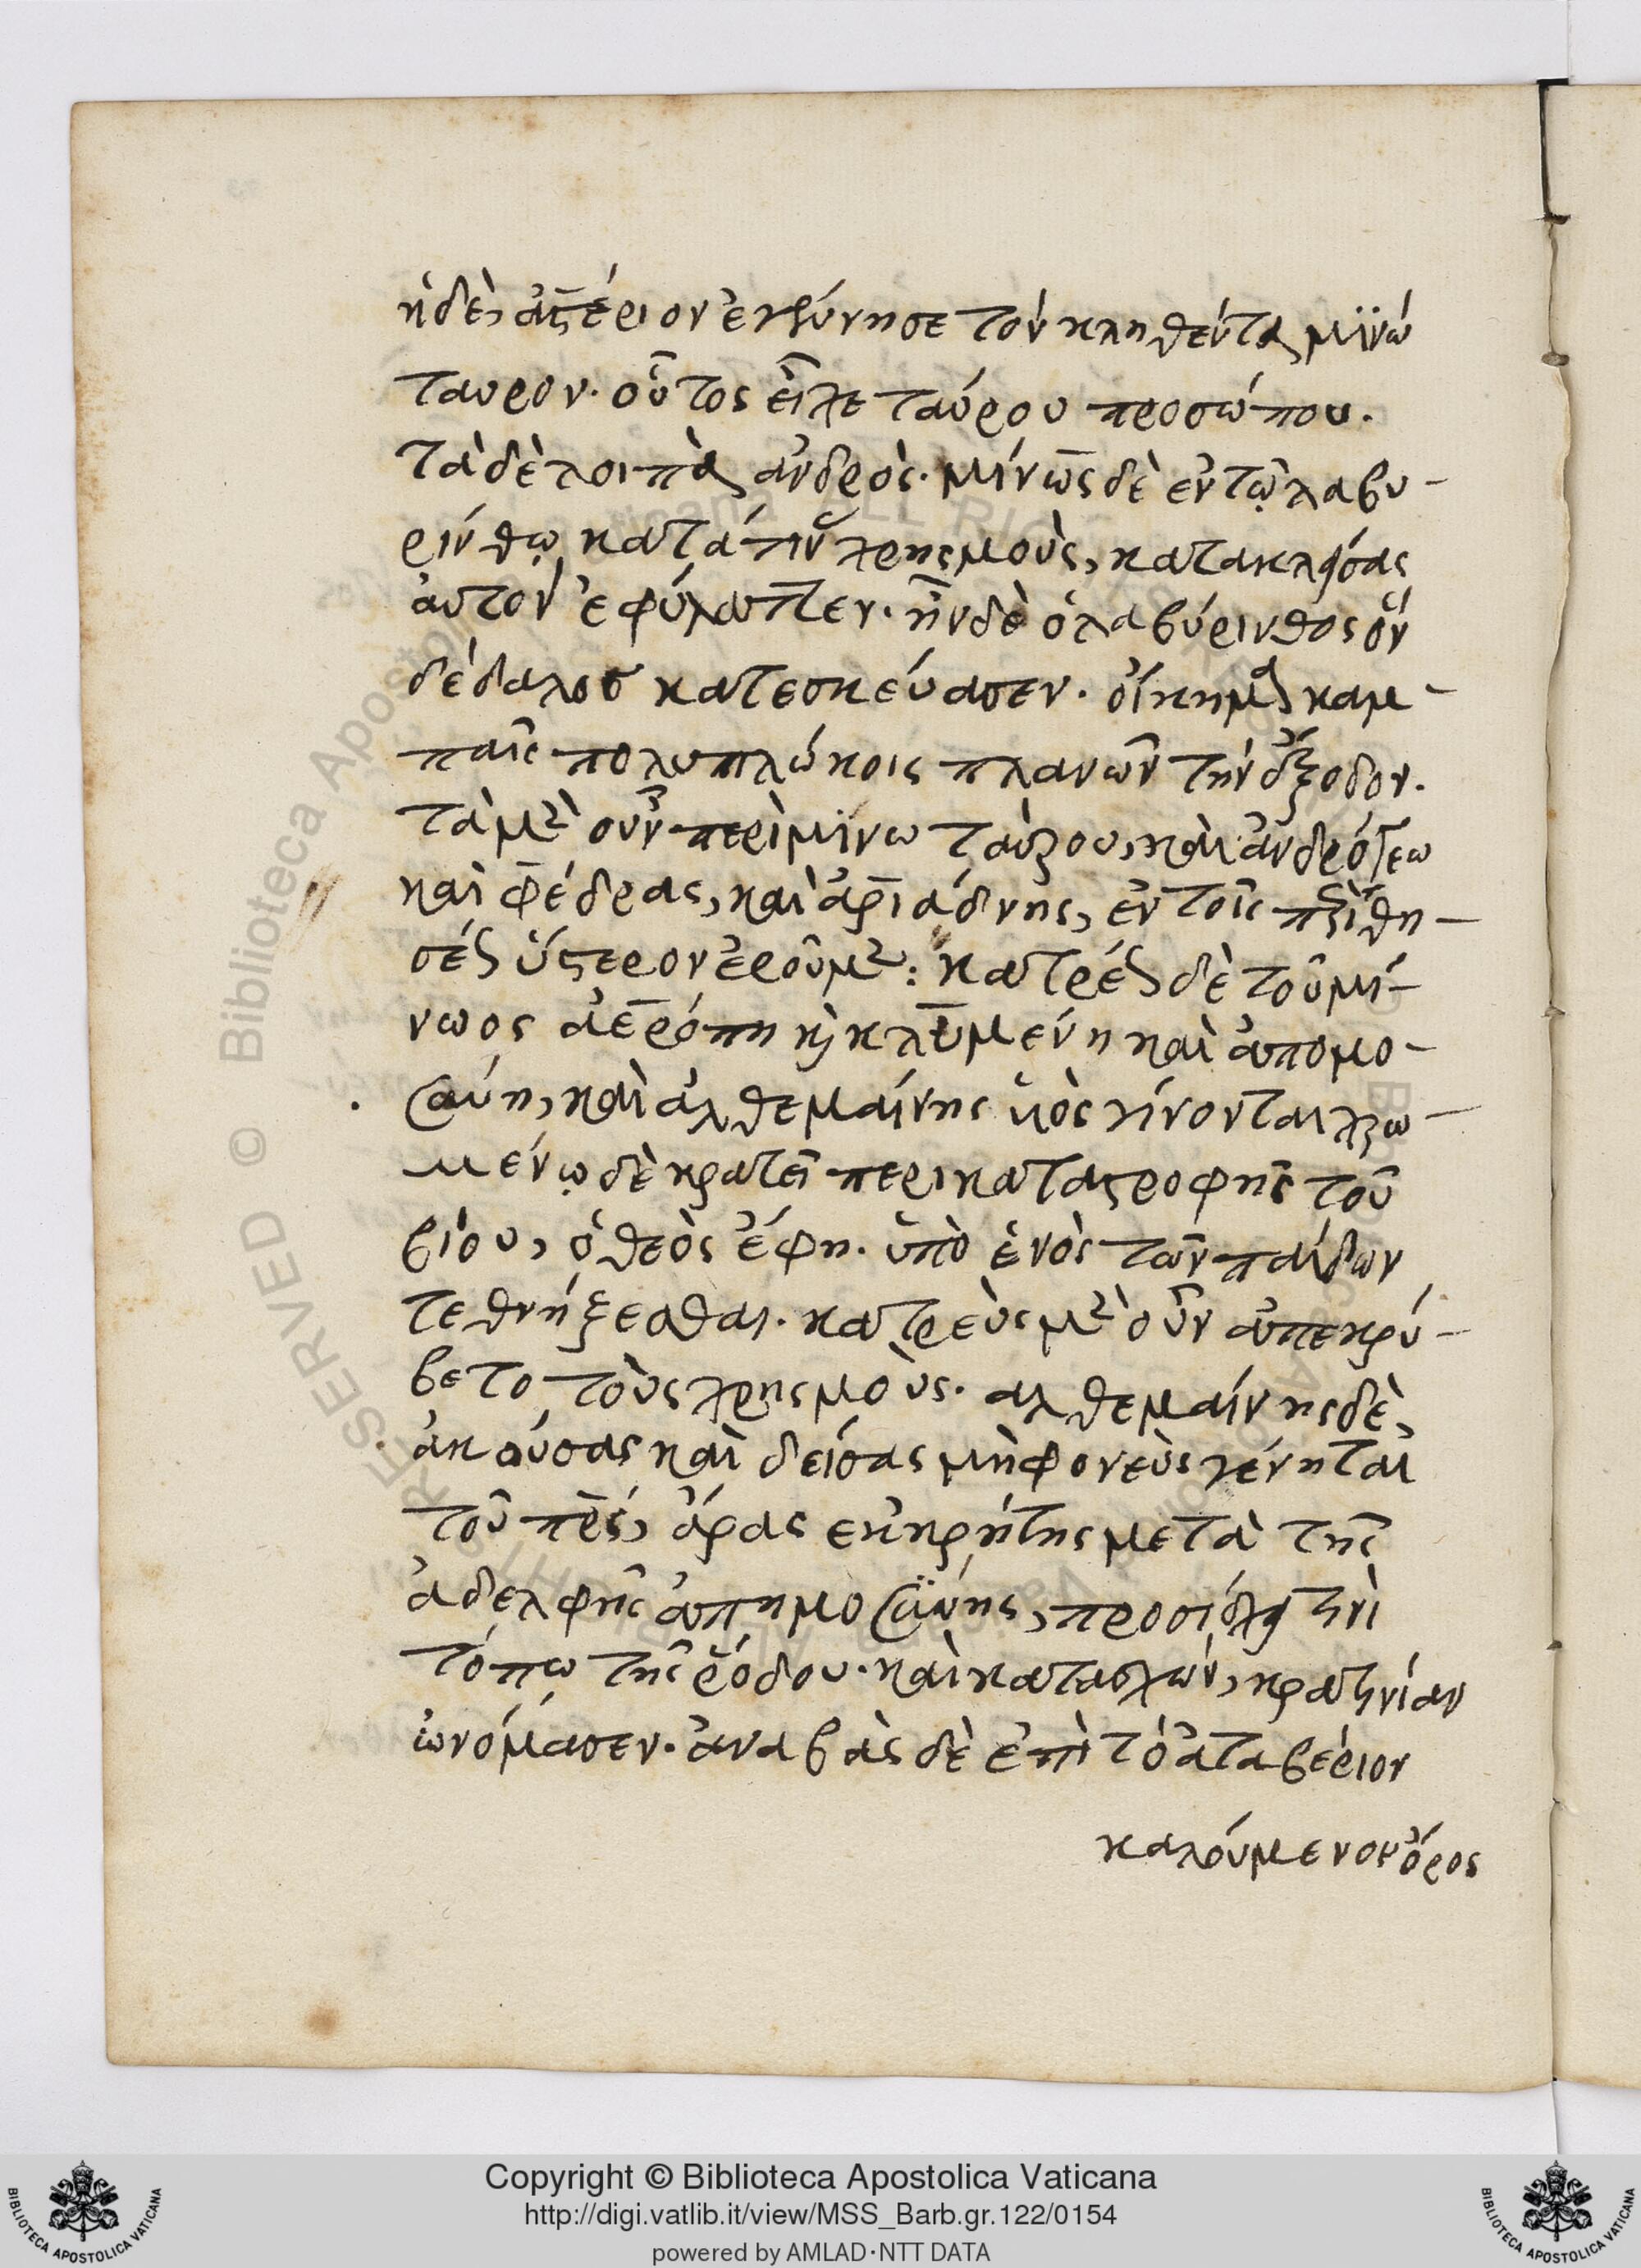 ἡ δὲ, ἀστέριον ἐγέννησε τὸν κληθέντα μϊνώ
ταυρον. οὗτος εἶχε ταύρου προσώπου.
τὰ δὲ λοιπὰ ἀνδρός. μίνως δὲ ἐν τῷ λαβυ-
ρίνθῳ κατά τινας χρησμοὺς, κατακλείσας
αὐτὸν ἐφύλαττεν. ἦν δὲ ὁ λαβύρινθος ὃν
δέδαλος κατεσκεύασεν. οἴκημα καμ-
παῖς πολυπλώκοις πλανῶν τὴν ἔξοδον.
τὰ μὲν οὖν περὶ μϊνωταύρου, καὶ ἀνδρόγεω
καὶ φέδρας, καὶ ἀριάδνης, ἐν τοῖς περὶ θη-
σέως ὕστερον ἐροῦμεν: κατρέως δὲ τοῦ μί-
νωος ἀερόπη κὶ κλυμένη καὶ ἀπομο-
σύνη, καὶ ἀλθεμαίνης υἱὸς γίνονται χρω-
μένῳ δὲ κρατεῖ περι καταστροφῆς τοῦ
βίου, ὁ θεὸς ἔφη. ὑπὸ ἑνὸς τῶν παίδων
τεθνήξεσθαι. κατρεὺς μὲν οὖν ἀπεκρύ-
βετο τοὺς χρησμούς. αλθεμαίνης δὲ,
ἀκούσας καὶ δείσας μὴ φονεὺς γένηται
τοῦ πρς, ἄρας ἐκ κρήτης μετὰ τῆς
ἀδελφῆς ἀπημοσύνης, προσίσχει τινὶ
τόπῳ τῆς ῥόδου. καὶ κατασχὼν, κρατινίαν
ὠνόμασεν. ἀναβὰς δὲ ἐπὶ τὸ ἀταβέριον
καλούμενον ὄρος
Copyright © Biblioteca Apostolica Vaticana
http://digi.vatlib.it/view/MSS_Barb.gr.122/0154
powered by AMLAD·NTT DATA
BIBLIOTECA APOSTOLICA VATICANA
BIBLIOTECA APOSTOLICA VATICANA